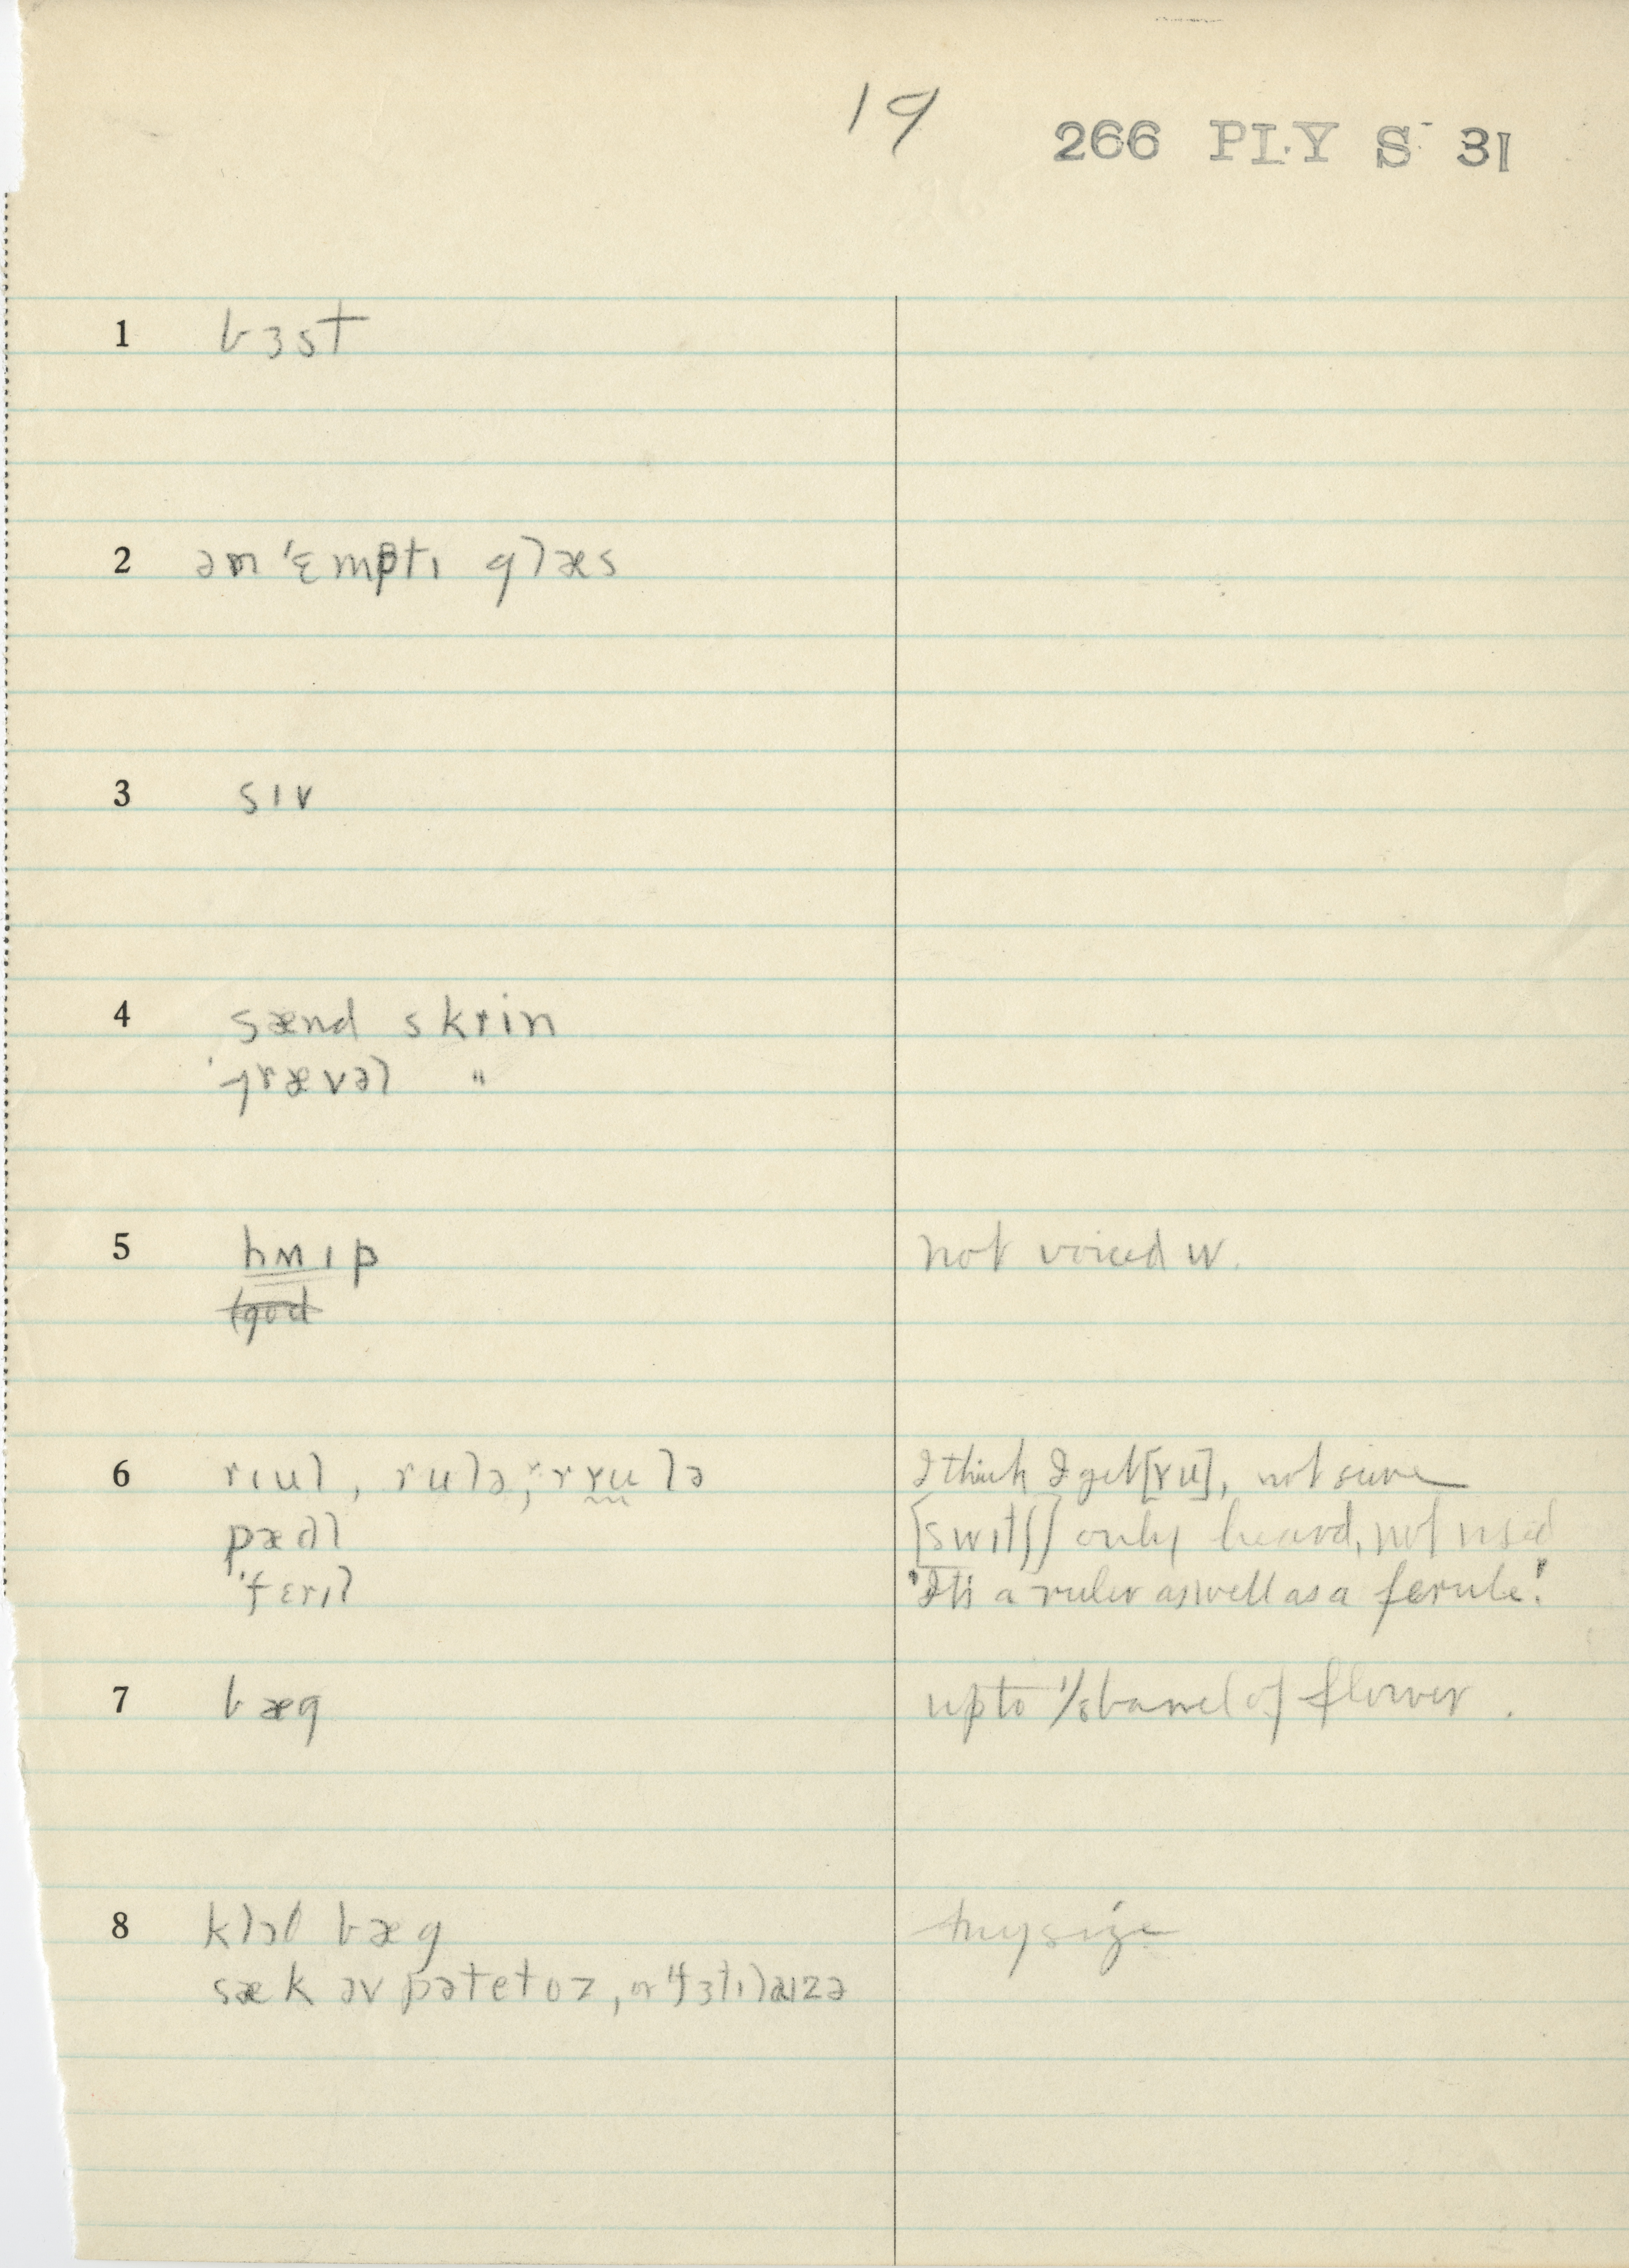 19
266 PLY S 31
1 bɜst
2 ən ˈɛmptɪ glæs
3 sɪv
4 sænd skrin
ˈgrævəl "
5 hʍɪp not voiced w.
6 rɪul, rulə, ɤulə I think I get [ɤu], not sure
pædl [swɪtʃ] only heard, not used
ˈfɛrɪl "It's a ruler as well as a ferule."
7 bæg up to 1/8 barrel of flower.
8 klɔθ bæg any size
sæk əv pətetoz, or ˈfɜtɪlaɪzə